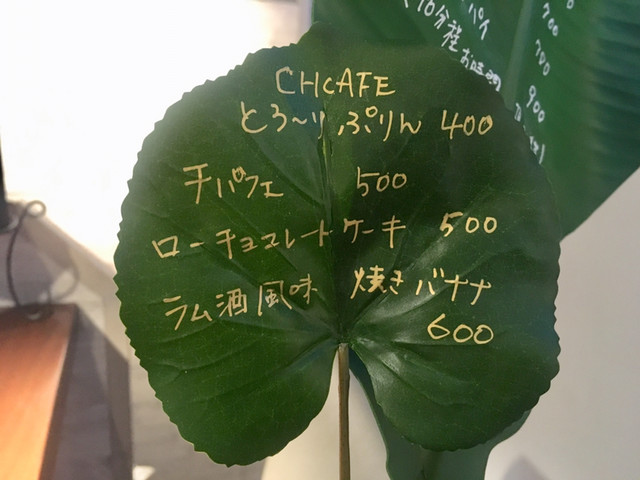 CHCAFE
とろ〜り ぷりん 400
チパフェ 500
ローチョコレートケーキ 500
ラム酒風味 焼きバナナ
600
パイ 700
700
900